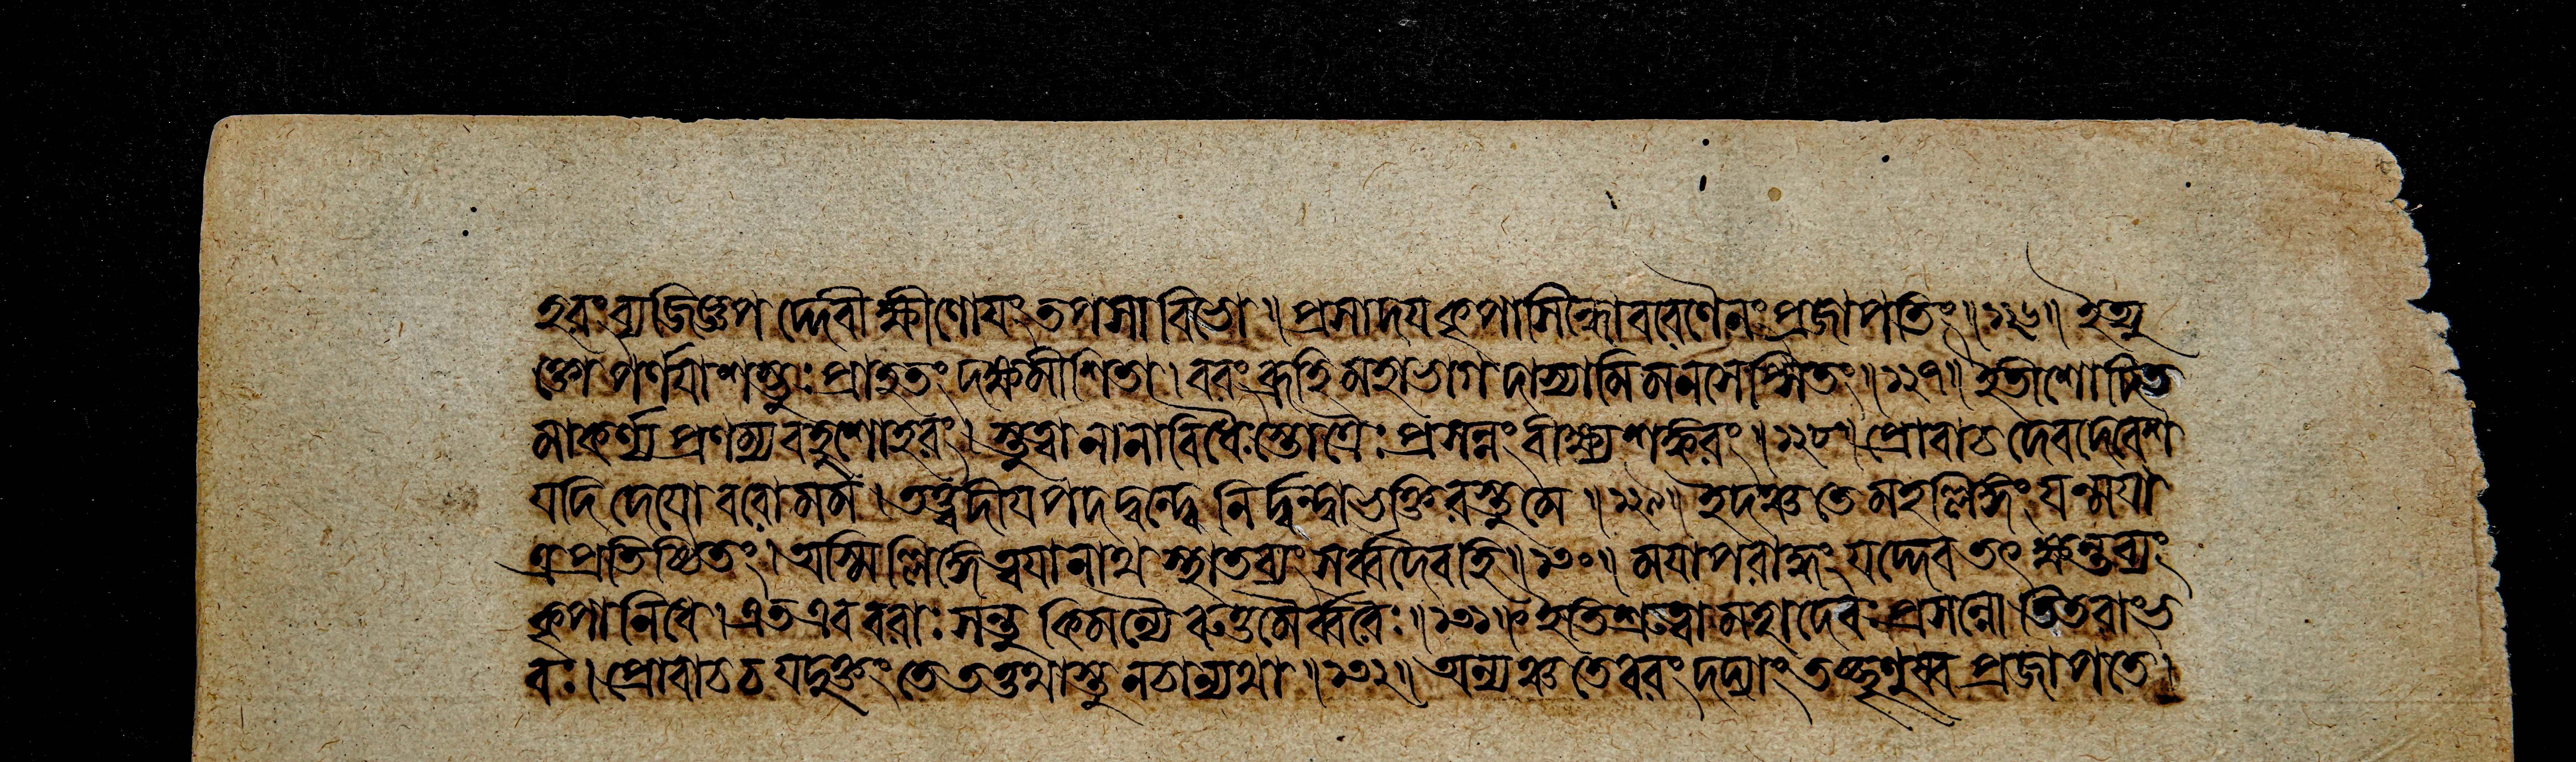 হরং ব্যজিজ্ঞপদ্দেবী ক্ষীণোয়ং তপসা বিভো ॥ প্রসাদয় কৃপাসিন্ধো বরেণৈনং প্রজাপতিং ॥ ১২৬ ॥ ইত্যু
ক্তোপর্ণয়া শম্ভুঃ প্রাহ তং দক্ষমীশিতা । বরং ব্রূহি মহাভাগ দাস্যামি মনসেপ্সিতং ॥ ১২৭ ॥ ইতীশোদিত
মাকর্ণ্য প্রণম্য বহুশো হরং । স্তুত্বা নানাবিধৈঃ স্তোত্রৈঃ প্রসন্নং বীক্ষ্য শঙ্করং ॥ ১২৮ ॥ প্রোবাচ দেবদেবেশ
যদি দেয়ো বরো মম । তত্ত্বদীয়পদদ্বন্দ্বে নির্দ্বন্দ্বা ভক্তিরস্তু মে ॥ ১২৯ ॥ ইদঞ্চ তে মহল্লিঙ্গং যন্ময়া
ত্র প্রতিষ্ঠিতং । অস্মিল্লিঙ্গে ত্বয়া নাথ স্থাতব্যং সর্ব্বদৈব হি ॥ ১৩০ ॥ ময়াপরাদ্ধং যদ্দেব তৎ ক্ষন্তব্যং
কৃপানিধে । এত এব বরাঃ সন্তু কিমন্যৈরুত্তমৈর্ব্বরৈঃ ॥ ১৩১ ॥ ইতি শ্রুত্বা মহাদেবঃ প্রসন্নোতিতরাং ভ
বঃ । প্রোবাচ চ যদুক্তং তে তত্তথাস্তু ন চান্যথা ॥ ১৩২ ॥ অন্যঞ্চ তে বরং দদ্যাং তচ্ছৃণুষ্ব প্রজাপতে ।